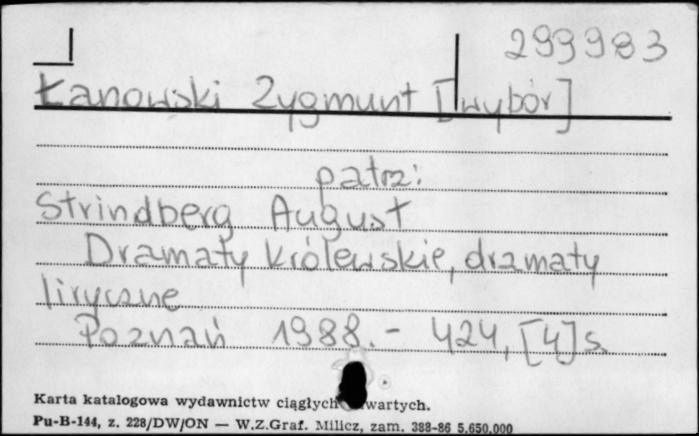 299983
Łanowski Zygmunt [wybór]
patrz:
Strindberg August
Dramaty królewskie, dramaty
liryczne
Poznań 1988. - 424, [4] s.
Karta katalogowa wydawnictw ciągłych wartych.
Pu-B-144, z. 228/DW/ON — W.Z.Graf. Milicz, zam. 388-86 5.650.000